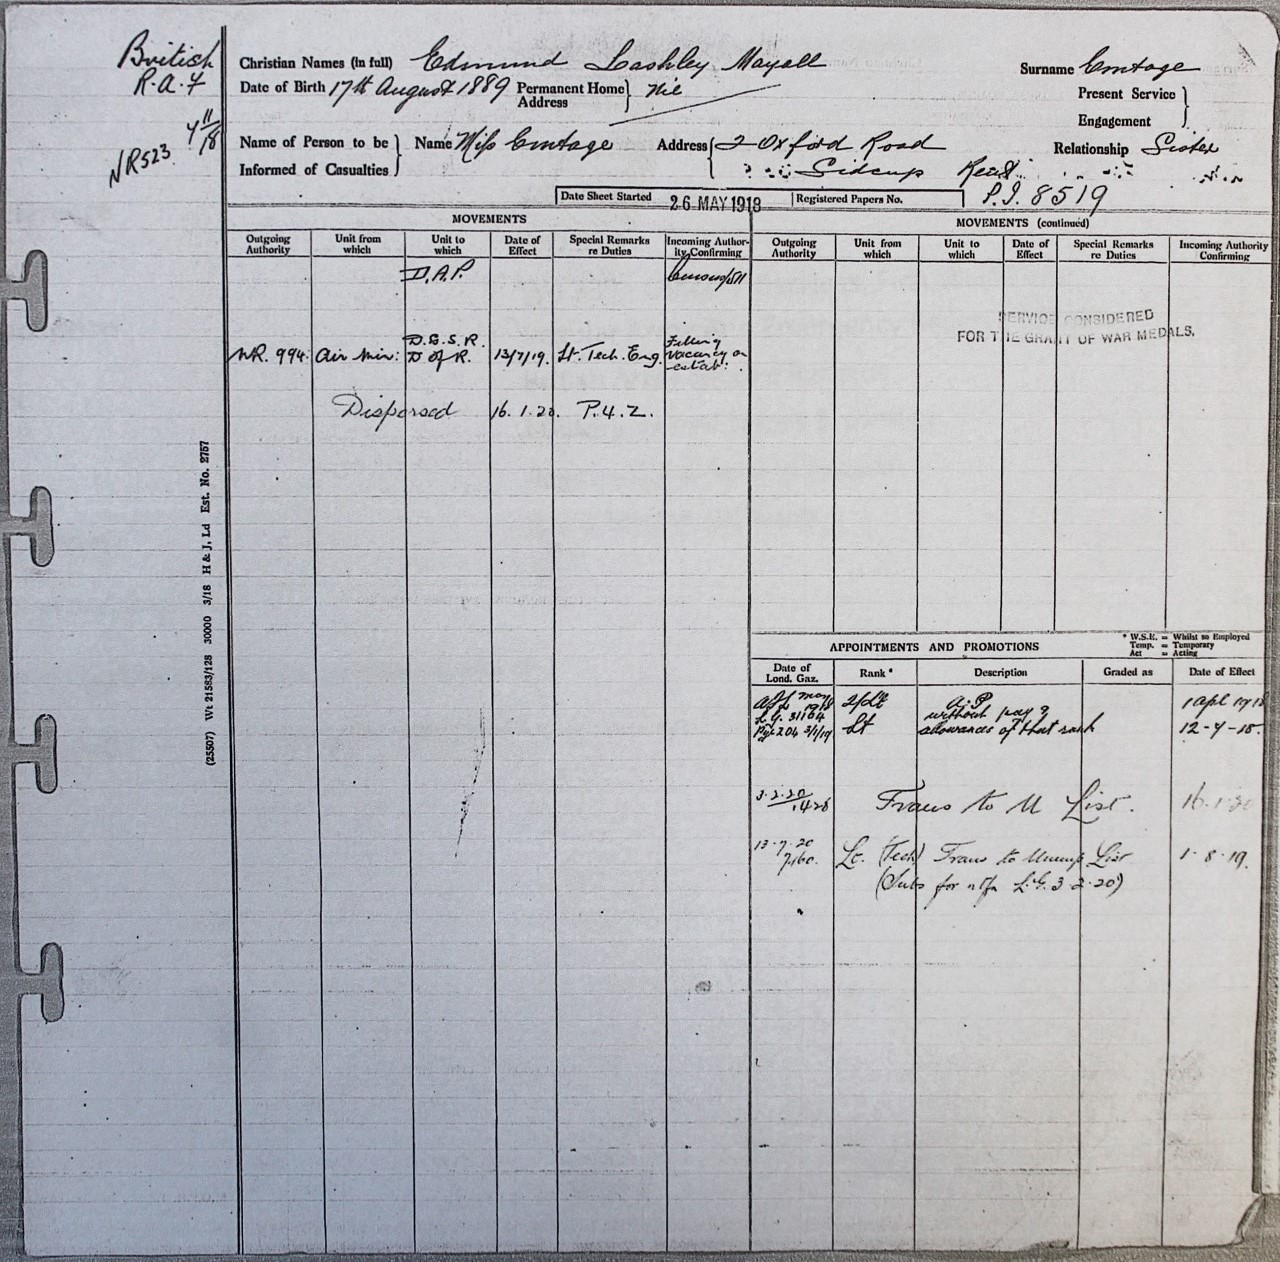 British
R.A.F
NR523 4/11/18
Christian Names (in full) Edmund Lashley Mayall
Surname Emtage
Date of Birth 17th August 1889 Permanent Home Address } Nil
Present Service Engagement }
Name of Person to be Informed of Casualties } Name Miss Emtage Address { 2 Oxford Road
Sidcup Kent
Relationship Sister
Date Sheet Started 26 MAY 1918 Registered Papers No. P.I. 8519
MOVEMENTS
Outgoing Authority Unit from which Unit to which Date of Effect Special Remarks re Duties Incoming Authority Confirming
D.A.P.
D.G.S.R.
NR. 994. Air Min: D of R. 13/7/19. Lt. Tech. Eng. Filling vacancy on estab:
Dispersed 16.1.20. P.4.Z.
MOVEMENTS (continued)
Outgoing Authority Unit from which Unit to which Date of Effect Special Remarks re Duties Incoming Authority Confirming
SERVICE CONSIDERED
FOR THE GRANT OF WAR MEDALS.
APPOINTMENTS AND PROMOTIONS
* W.S.E. = Whilst so Employed
Temp. = Temporary
Act = Acting
Date of Lond. Gaz. Rank * Description Graded as Date of Effect
May 1918 2/Lt 1 Apl 1918
L.G. 31104 3/1/19 Lt without pay & allowances of that rank
3.2.20 1428 Trans to U List. 16.1.20
13-7-20 7460. Lt. (Tech) Trans to Unemp List 1-8-19.
(Subs for L.G. 3-2-20)
(25507) Wt 21583/128 30000 3/18 H & J, Ld Est. No. 2757